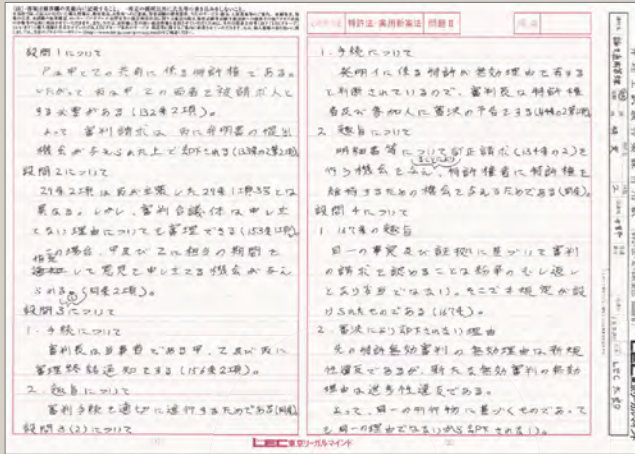 特許法・実用新案法 問題Ⅱ
設問1について
Pは甲と乙の共有に係る特許権である。
したがって丙は甲、乙の両者を被請求人と
する必要がある(132条2項)。
よって審判請求は、丙に弁明書の提出
機会が与えられた上で却下される(133条の2第2項)
設問2について
29条2項は丙が主張した29条1項3号とは
異なる。しかし、審判合議体は申し立
てない理由についても審理できる(153条1項)。
この場合、甲及び乙に相当の期間を
指定して意見を申し立てる機会が与え
られる。(同条2項)。
設問3(1)について
1.手続について
審判長は当事者である甲、乙及び丙に
審理終結通知をする(156条2項)。
2.趣旨について
審判手続を適切に進行するためである(同条)
設問3(2)について
LEC東京リーガルマインド
1.手続について
発明イに係る特許が無効理由を有する
と判断されているので、審判長は特許権
者及び参加人に審決の予告をする(164条の2第1項)
2 趣旨について
明細書等について訂正請求(134条の2)を
行う機会を与え、特許権者に特許権を
維持するための機会を与えるためである(同条)。
設問4について
1 167条の趣旨
同一の事実及び証拠に基づいて審判
の請求を認めることは紛争のむし返し
となり妥当でない。そこで本規定が設
けられたものである(167条)。
2.審決により却下されない理由
先の特許無効審判の無効理由は新規
性違反であるが、新たな無効審判の無効
理由は進歩性違反である。
よって、同一の刊行物に基づくものであって
も同一の理由でないから却下されない。